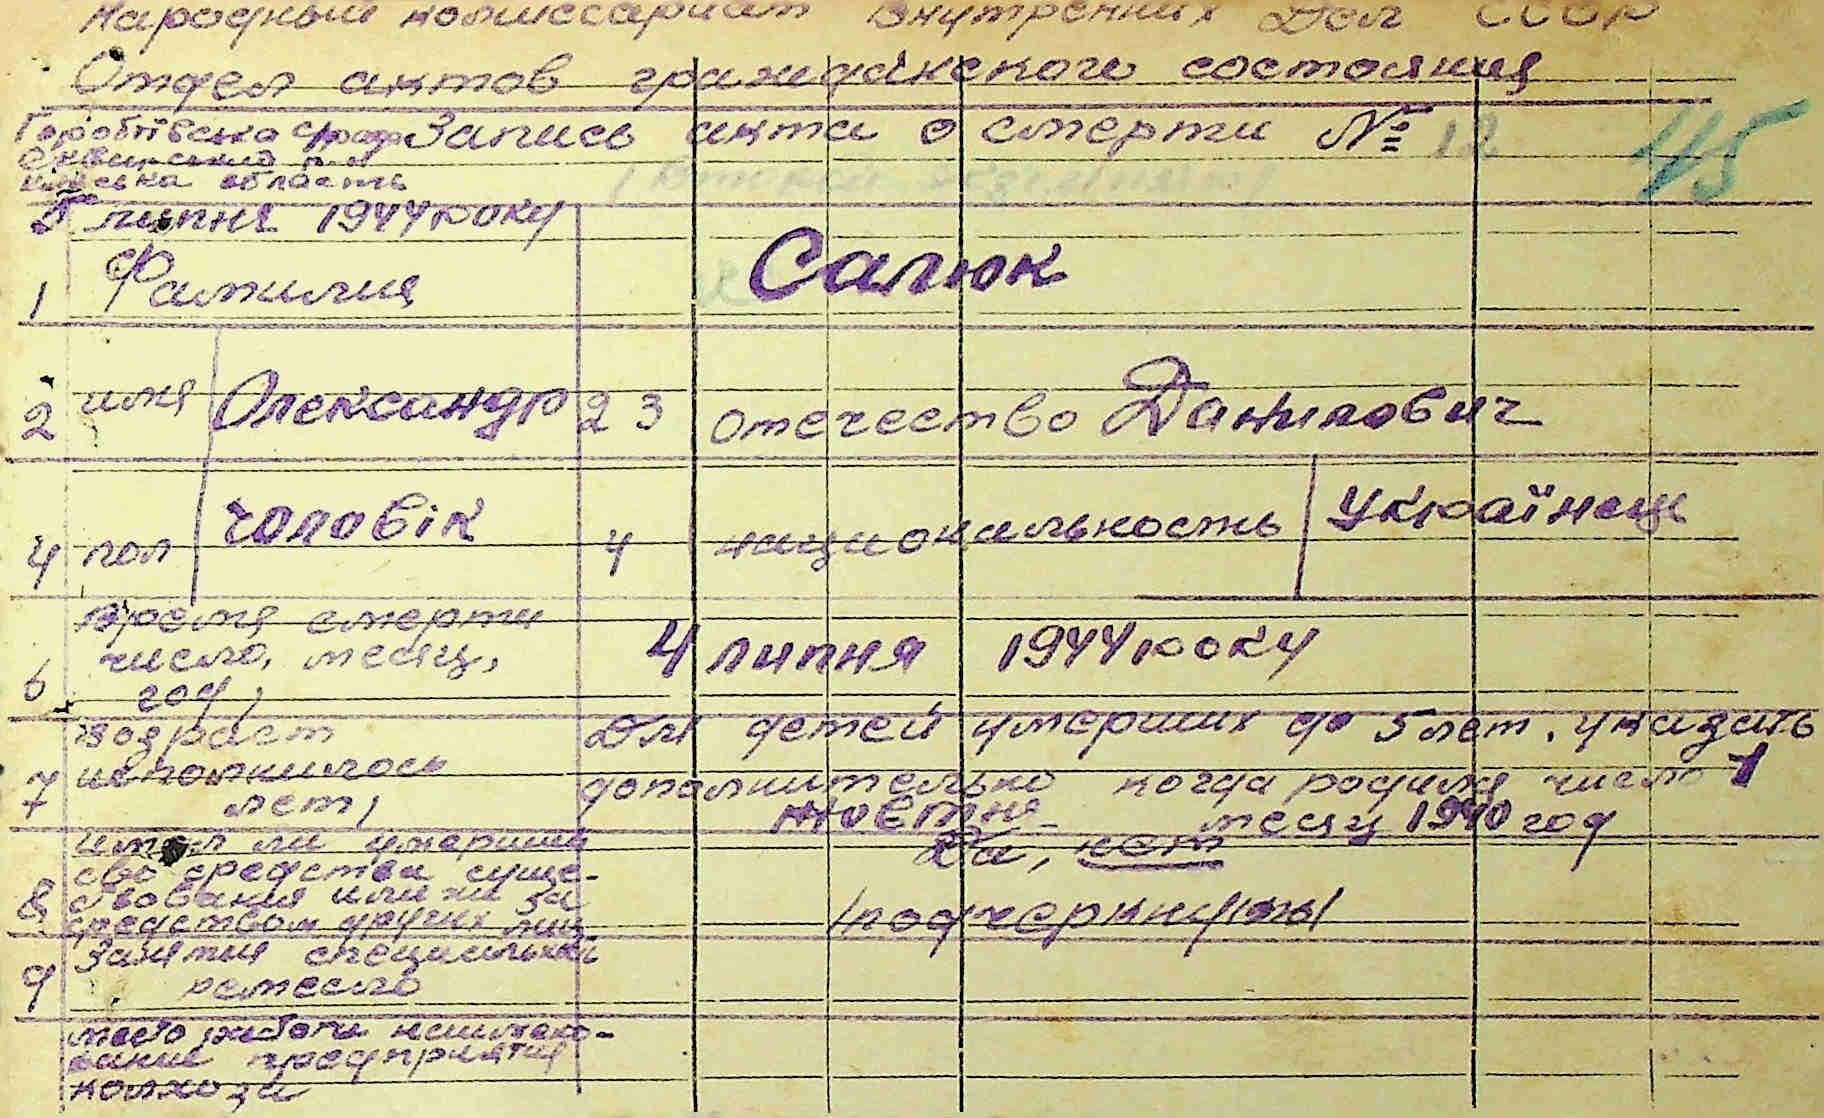 Народный комиссариат Внутренних Дел СССР
Отдел актов гражданского состояния
Запись акта о смерти № 12
45
область
5 липня 1944 року
1 Фамилия Салюк
2 имя Олександр 2 3 отечество Данилович
4 пол чоловік 4 национальность Українець
6 время смерти число, месяц, год, 4 липня 1944 року
7 возраст исполнилось лет, Для детей умерших до 5 лет, указать
дополнительно когда родился число 1
жовтня месяц 1940 год
8 имел ли умерший
средства суще-
ствования или на
средством других лиц
Да, нет
/подчеркнуть/
9 Занятия специальность
ремесло
место работы наимено-
вание предприятия
колхоза